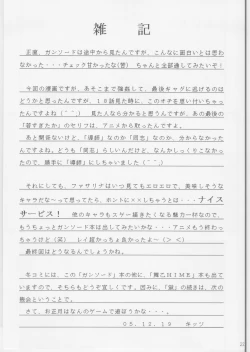 雑　記
正直、ガンソードは途中から見たんですが、こんなに面白いとは思わ
なかった・・・チェック甘かったな(苦)　ちゃんと全部通してみたいぞ！
今回の漫画ですが、あそこまで陵辱して、最後ギャグに逃げるのは
どうかと思ったんですが、１８話見た時に、このオチを思い付いちゃっ
たんですよね（＾＾；）　見た人なら分かると思うんですが、あの最後の
「若すぎたか」のセリフは、アニメから取ったんですよ。
あと関係ないけど、「導師」なのか「同志」なのか、分からなかった
んですよね。どうも「同志」らしいんだけど、なんかしっくりこなかっ
たので、勝手に「導師」にしちゃいました（＾＾；）
それにしても、ファサリナはいつ見てもエロエロで、美味しそうな
キャラだな～って思ってたら、ホントに××しちゃうとは・・・ナイス
サービス！　他のキャラもスケー描きたくなる魅力一杯なので、
もうちょっとガンソード本は出してみたいかな・・・アニメも終わっ
ちゃうけど（涙）　レイ超かっちょ良かったよ～（＞＜）
最終回はどうなるんでしょうね。
冬コミには、この「ガンソード」本の他に、「舞乙HIME」本も出て
いますので、そちらもどうぞ宜しくです。因みに、「舞」の続きは、次の
機会ということで。
さて、お正月はなんのゲームで遊ぼうかな・・・。
０５．１２．１９